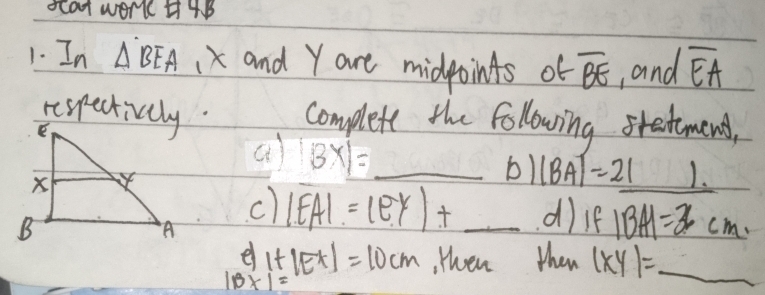 work # 4B
1. In Δ BEA, X and Y are midpoints of BE, and EA
respectively. Complete the following statement,
E
a) |BX|= ______ b) |BA|=2|____|.
X Y
c) |EA| = |EY| + ____ d) if |BA|= cm.
B A
e) If |EX| = 10cm, then then |XY|= ______
|BX|=